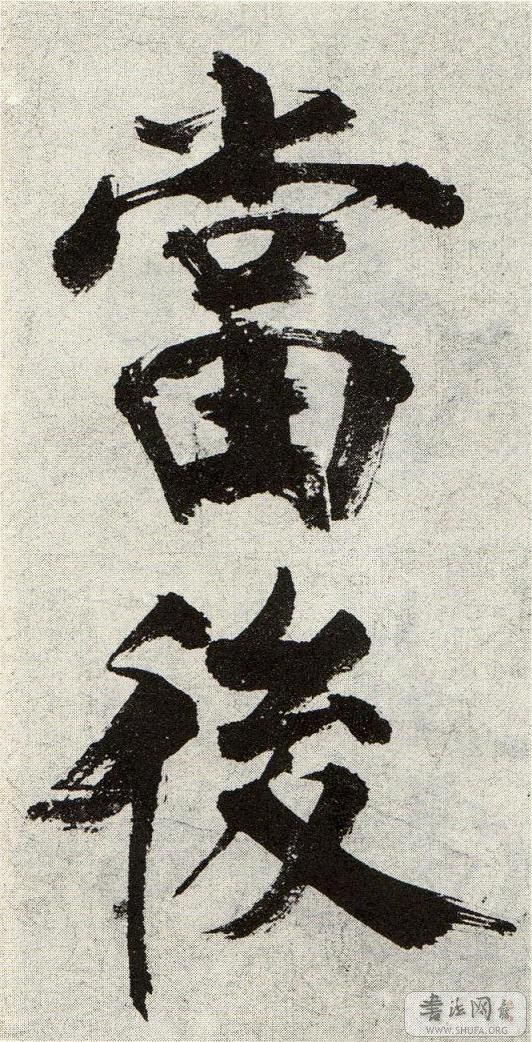 當
後
书法网
WWW.SHUFA.ORG